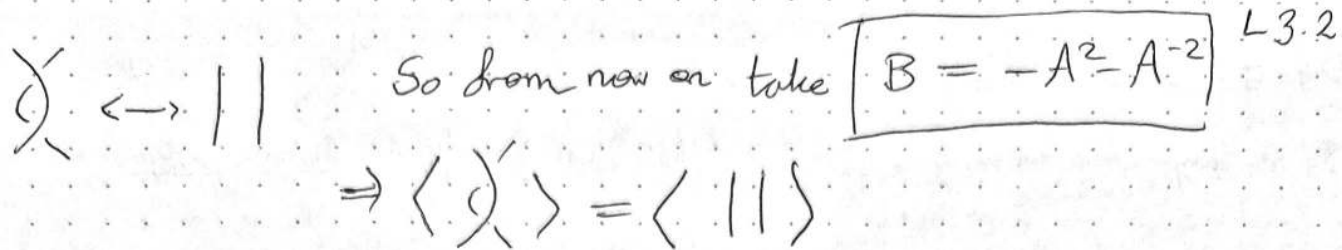 L3.2
⟷ || So from now on take B = -A² - A⁻²
⇒ ⟨ ⟩ = ⟨ || ⟩